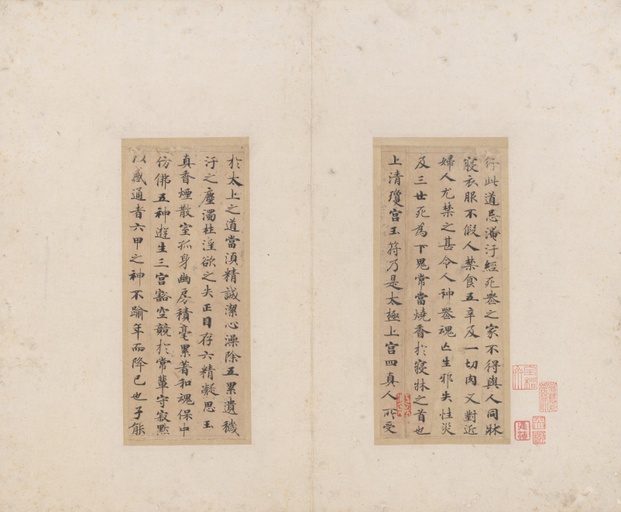 行此道忌淹汙經死喪之家不得與人同牀
寢衣服不假人禁食五辛及一切肉又對近
婦人尤禁之甚令人神喪魂亡生邪失性災
及三世死為下鬼常當燒香於寢牀之首也
上清瓊宮玉符乃是太極上宮四真人所受
於太上之道當須精誠潔心澡除五累遺穢
汙之塵濁杜淫欲之失正目存六精凝思玉
真香煙散室孤身幽房積毫累著和魂保中
仿佛五神遊生三宮豁空競於常輩守寂默
以感通者六甲之神不踰年而降已也子能